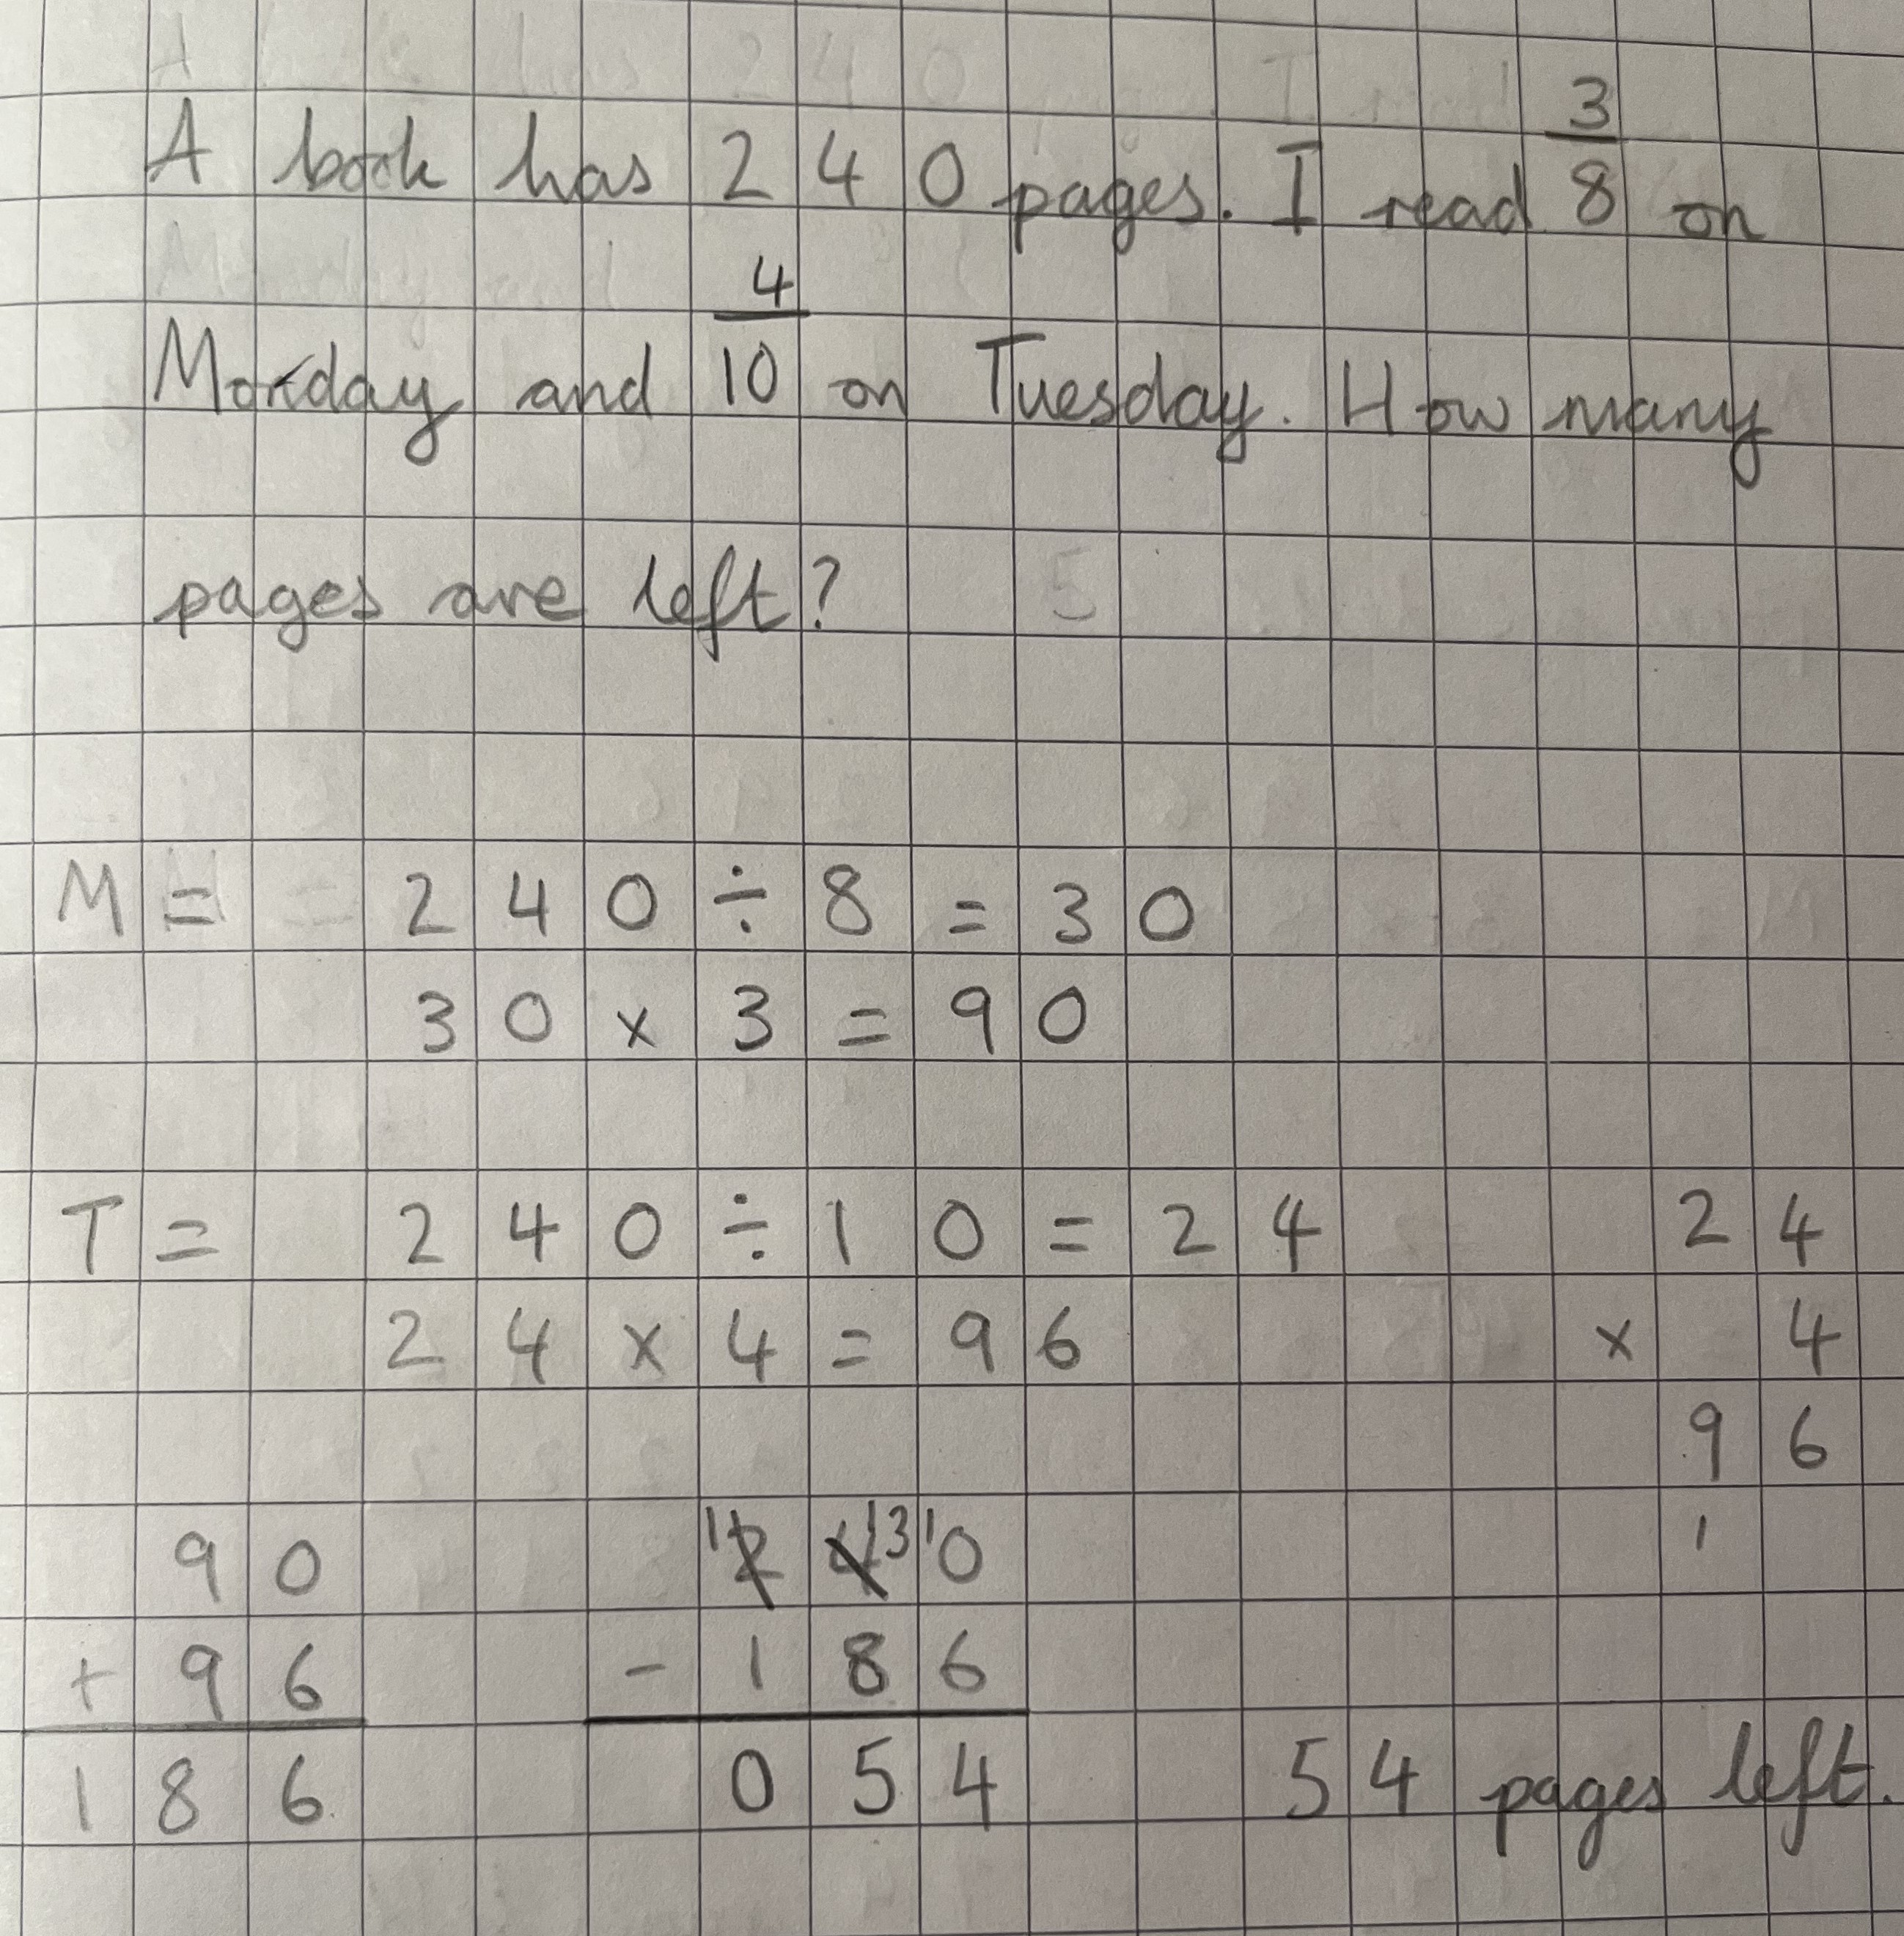 A book has 240 pages. I read 3/8 on
Monday and 4/10 on Tuesday. How many
pages are left?
M = 240 ÷ 8 = 30
30 x 3 = 90
T = 240 ÷ 10 = 24
24 x 4 = 96
24
x 4
96
1
90
+ 96
186
1 13 10
240
- 186
054
54 pages left.